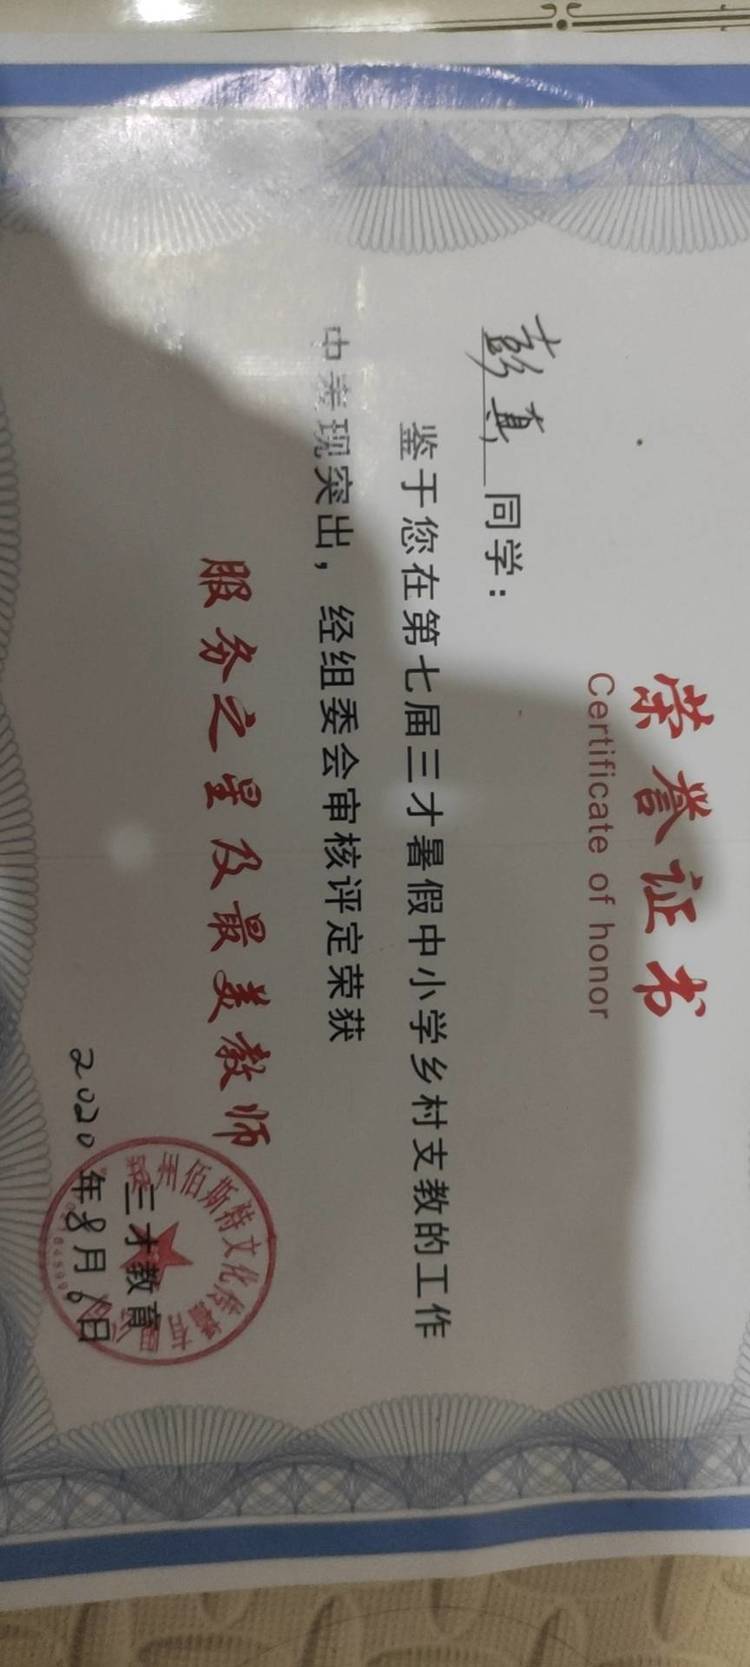 荣誉证书
Certificate of honor
彭真同学：
鉴于您在第七届三才暑假中小学乡村支教的工作
中表现突出，经组委会审核评定荣获
服务之星及最美教师
三才教育
2020年8月6日
郑州佰斯特文化传播有限公司